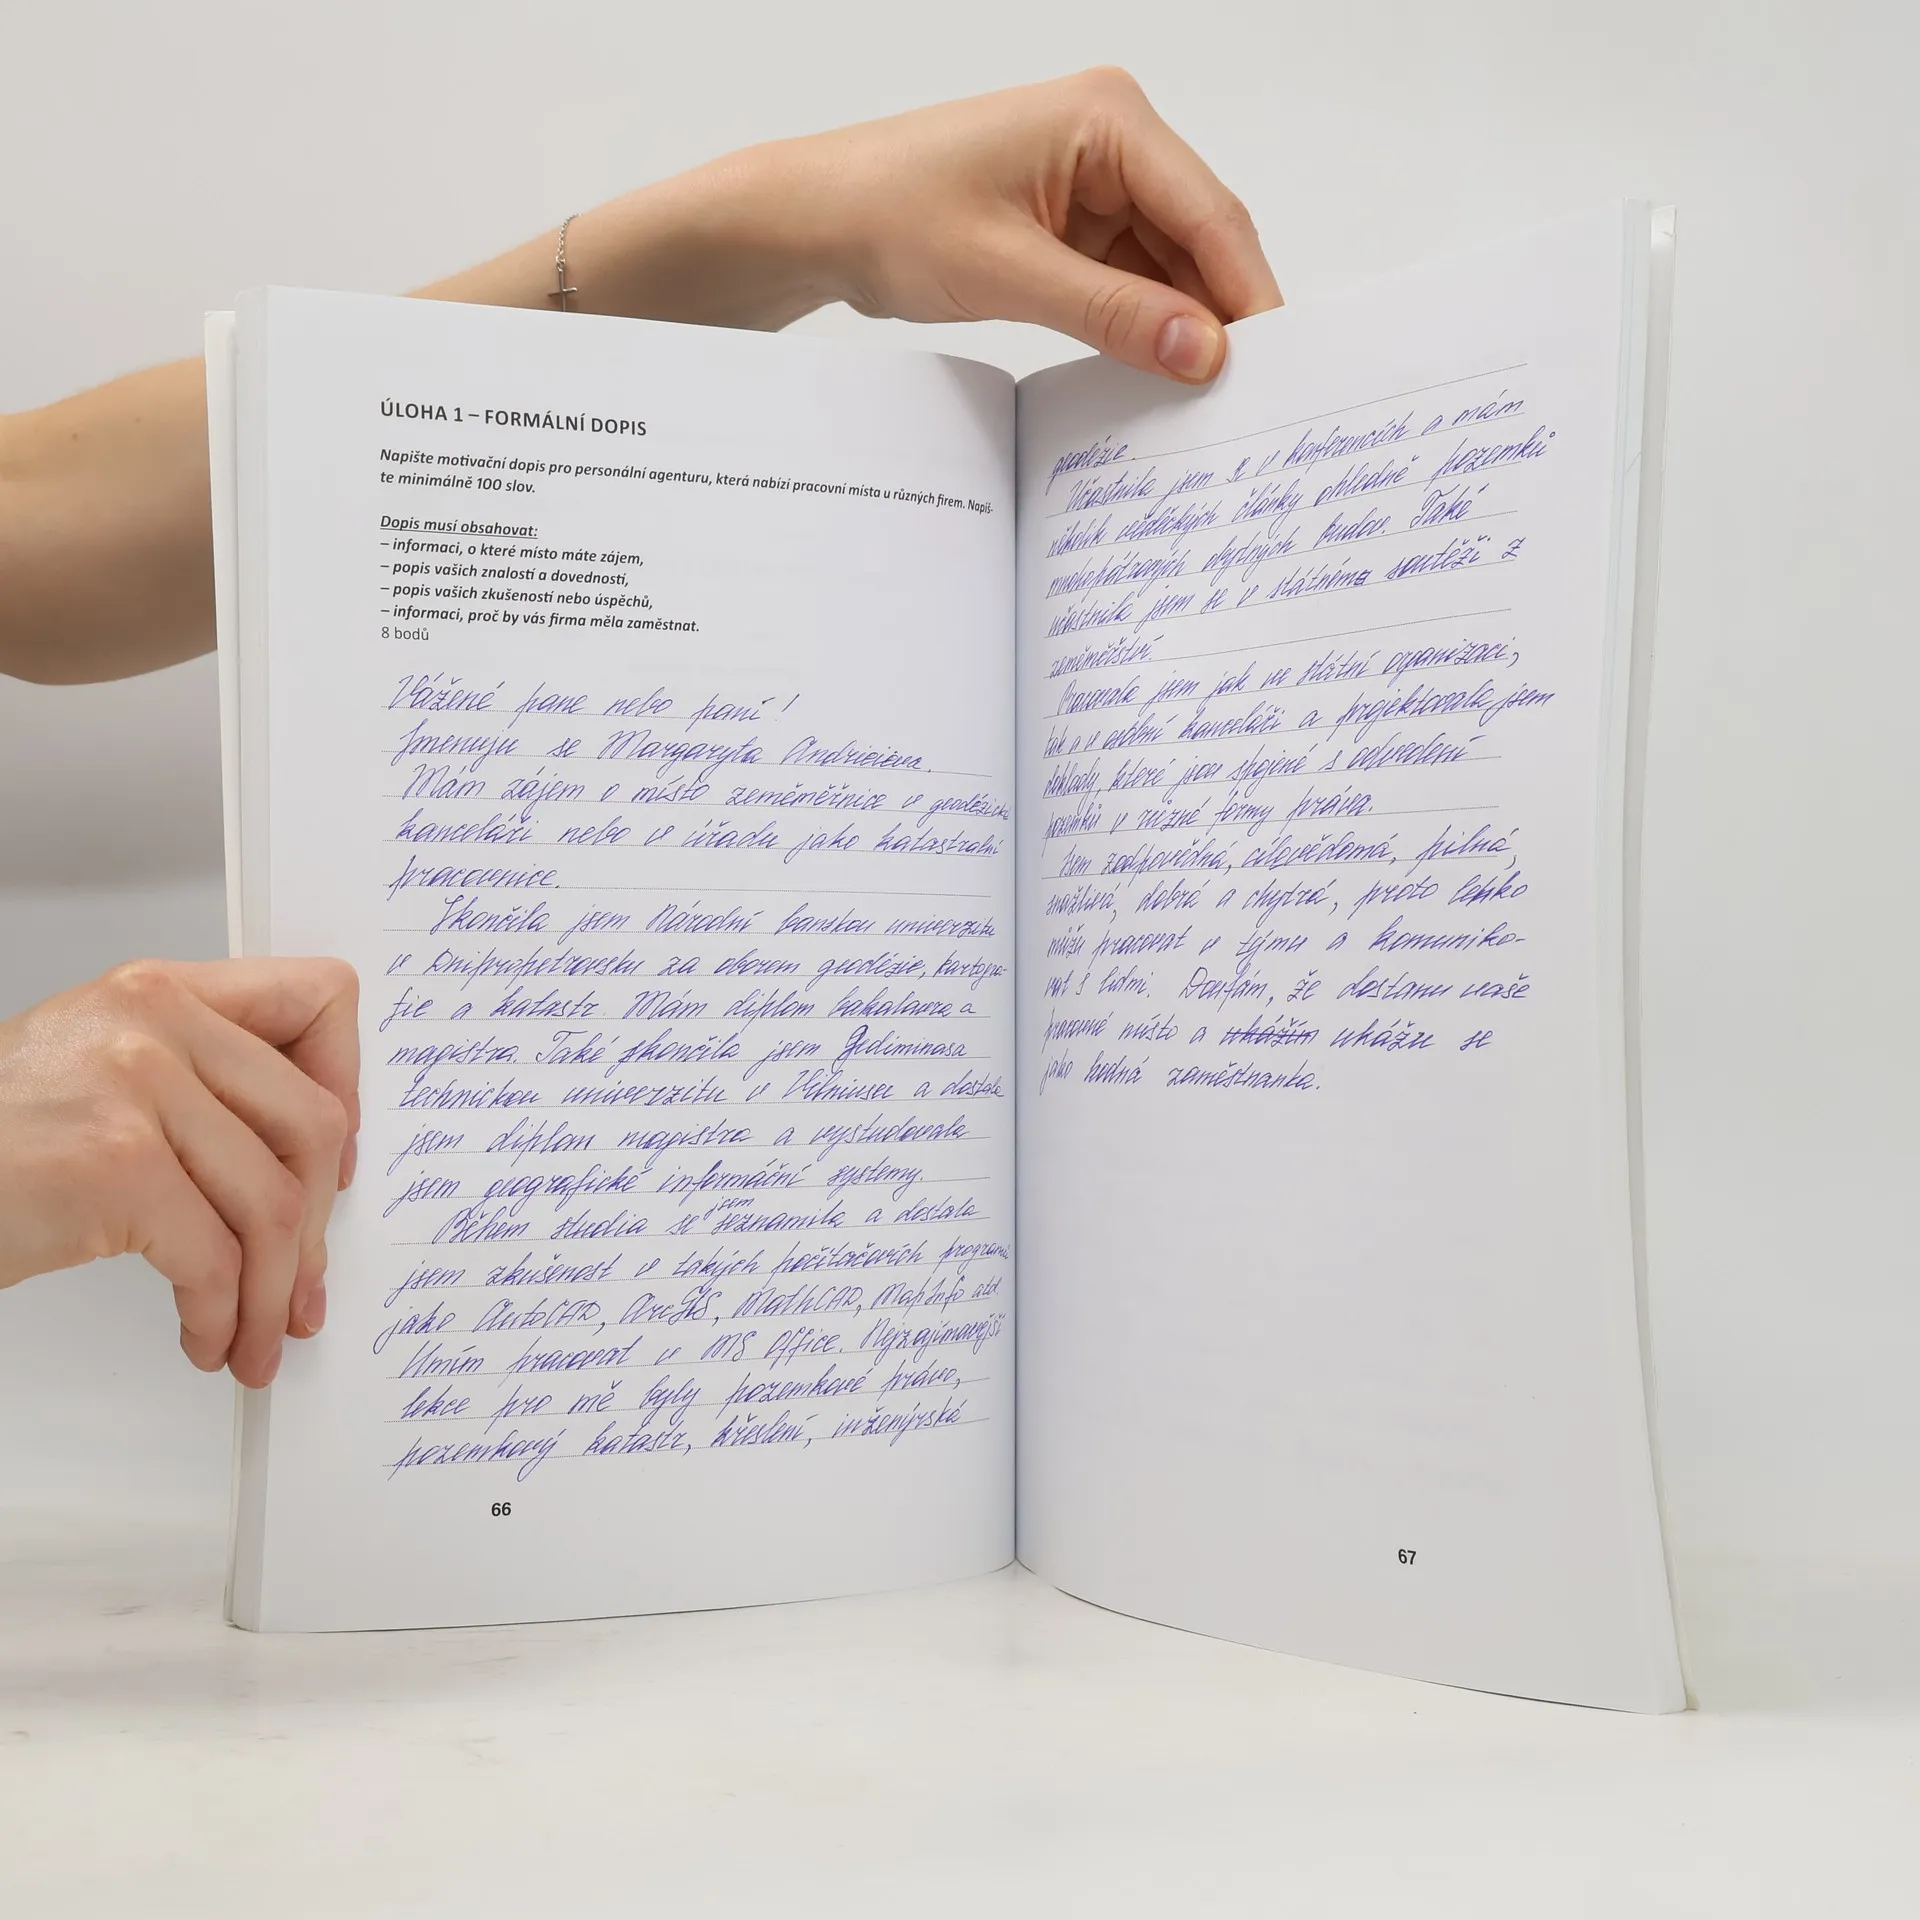 ÚLOHA 1 – FORMÁLNÍ DOPIS
Napište motivační dopis pro personální agenturu, která nabízí pracovní místa u různých firem. Napiš-
te minimálně 100 slov.
Dopis musí obsahovat:
– informaci, o které místo máte zájem,
– popis vašich znalostí a dovedností,
– popis vašich zkušeností nebo úspěchů,
– informaci, proč by vás firma měla zaměstnat.
8 bodů
Vážené pane nebo paní!
Jmenuju se Margaryta
Mám zájem o místo zeměměřnice v geodézické
kanceláři nebo v úřadu jako katastralní
pracovnice.
Skončila jsem Národní banskou univerzitu
v Dnipropetrovsku za oborem geodézie, kartogra-
fie a katastr. Mám diplom bakalavra a
magistra. Také skončila jsem Gediminasa
technickou univerzitu v Vilniusu a dostala
jsem diplom magistra a vystudovala
jsem geografické informáční systemy.
jsem
Během studia se seznamila a dostala
jsem zkušenost v takých počítačových programů
jako AutoCAD, ArcGIS, MathCAD, MapInfo atd.
Umím pracovat v MS Office. Nejzajímavější
lekce pro mě byly pozemkové právo,
pozemkový katastr, křeslení, inženýrská
66
geodézie.
Učastnila jsem se v konferencích a mám
několik věděckých články ohledně pozemků
mnohopátrových obytných budov. Také
učastnila jsem se v státníma soutěži z
zeměměřství.
Pracovala jsem jak ve státní organizaci,
tak a v osobní kanceláři a projektovala jsem
doklady, které jsou spojené s odvedení
pozemků v různé formy práva.
Jsem zodpovědná, cílovědomá, pilná,
snažlivá, dobrá a chytrá, proto lehko
můžu pracovat v týmu a komuniko-
vat s lidmi. Doufám, že dostanu vaše
pracovné místo a ukážím ukážu se
jako hodná zaměstnanka.
67